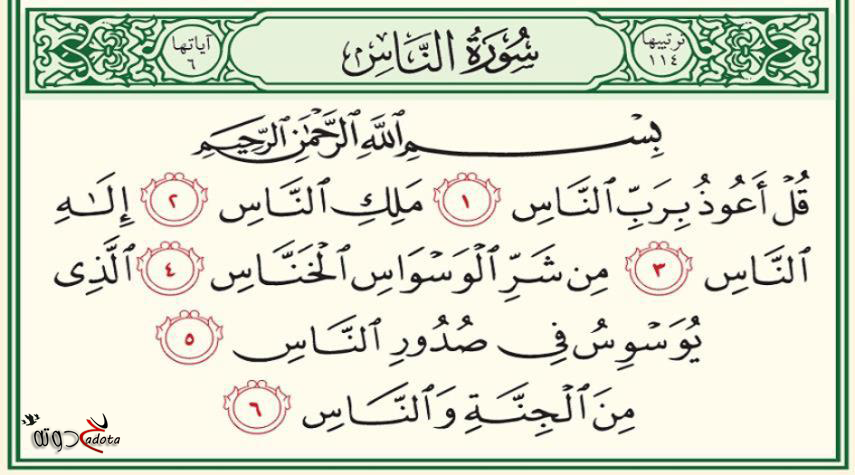 ترتيبها
١١٤
سُورَةُ النَّاسِ
آياتها
٦
بِسْمِ ٱللَّهِ ٱلرَّحْمَٰنِ ٱلرَّحِيمِ
قُلْ أَعُوذُ بِرَبِّ ٱلنَّاسِ ١ مَلِكِ ٱلنَّاسِ ٢ إِلَٰهِ
ٱلنَّاسِ ٣ مِن شَرِّ ٱلْوَسْوَاسِ ٱلْخَنَّاسِ ٤ ٱلَّذِى
يُوَسْوِسُ فِى صُدُورِ ٱلنَّاسِ ٥
مِنَ ٱلْجِنَّةِ وَٱلنَّاسِ ٦
adota